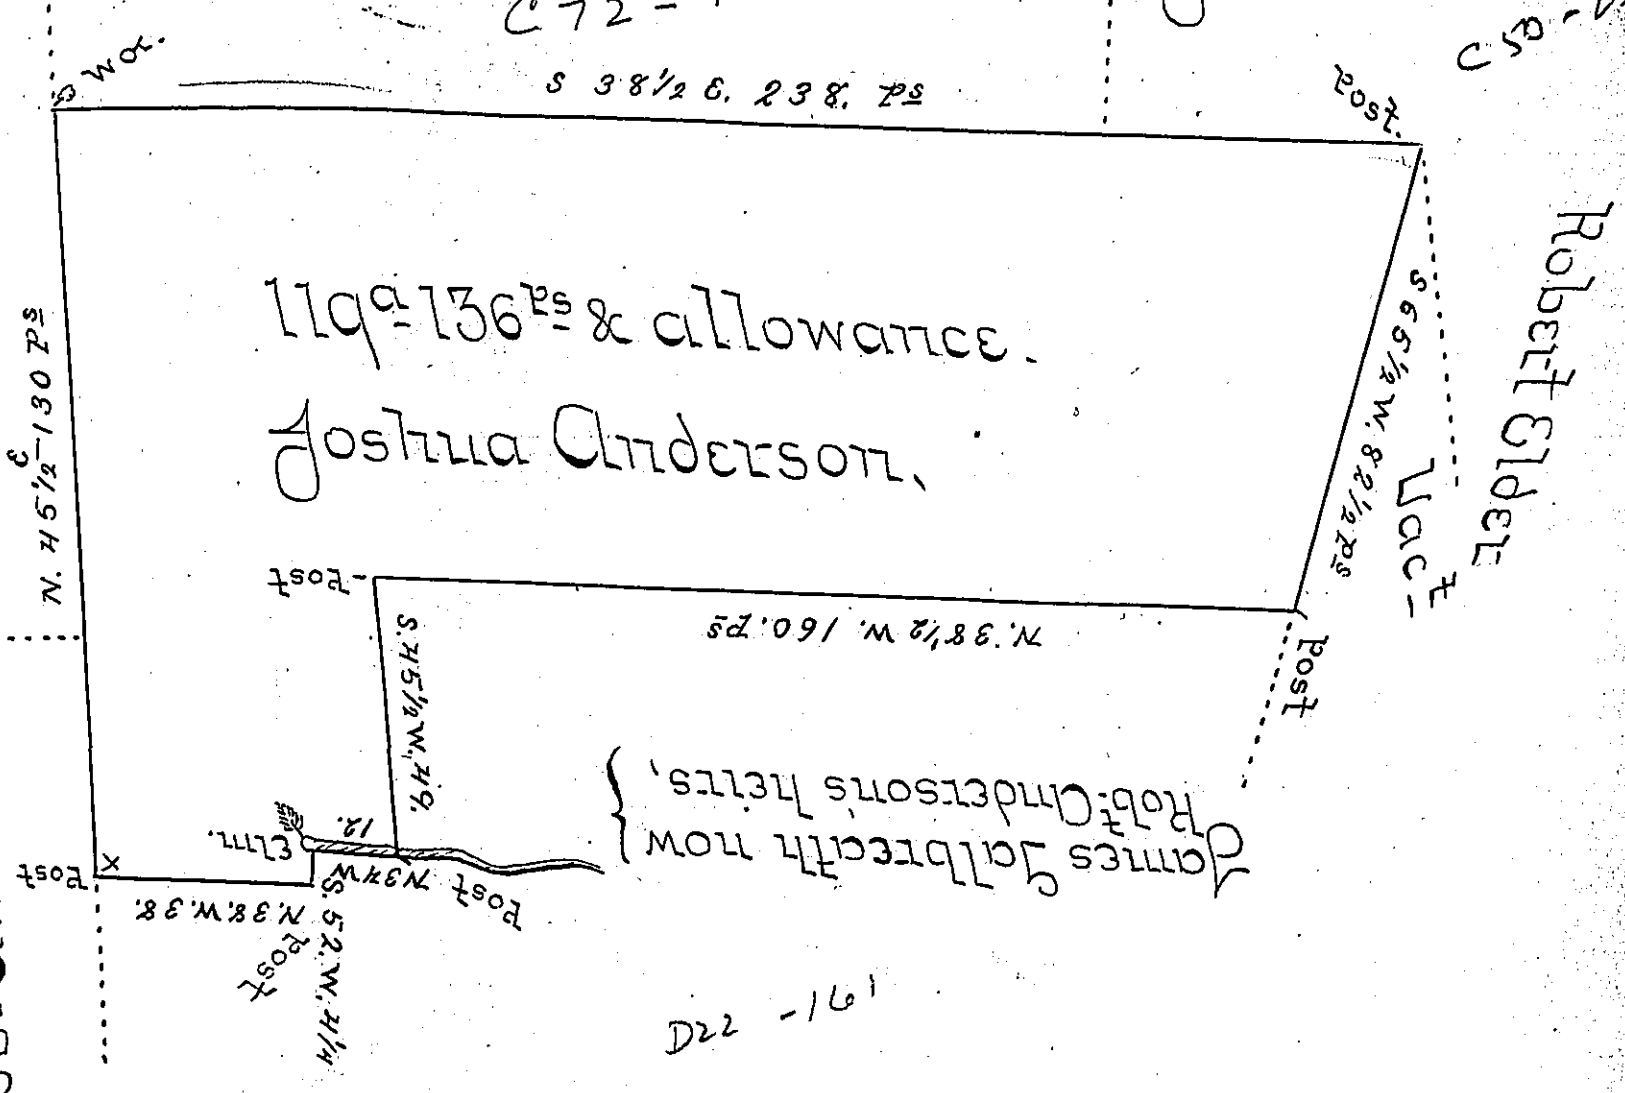 C 72 -
C 50 -
W O.
S 38½ E. 238. Ps
Post.
Robert Elder
N. 45½ E 130 Ps
119a 136Ps & allowance.
Joshua Anderson.
S 65½ W. 82½ Ps
Vact
Post
N. 38½ W. 160. Ps
Post
S. 45½ W. 49.
James Galbreath now
Robt Anderson's heirs,
Elm.
12.
N 34 W
Post
Post
X
N. 38. W. 38.
Post
S. 52. W. 4¼
D22 - 161